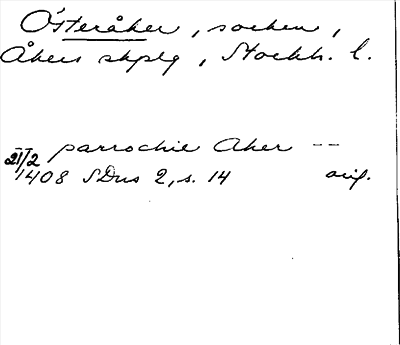 Österåker, socken,
Åkers skplg, Stockh. l.
parrochie Aker --
21/2 1408 SDns 2, s. 14 orig.